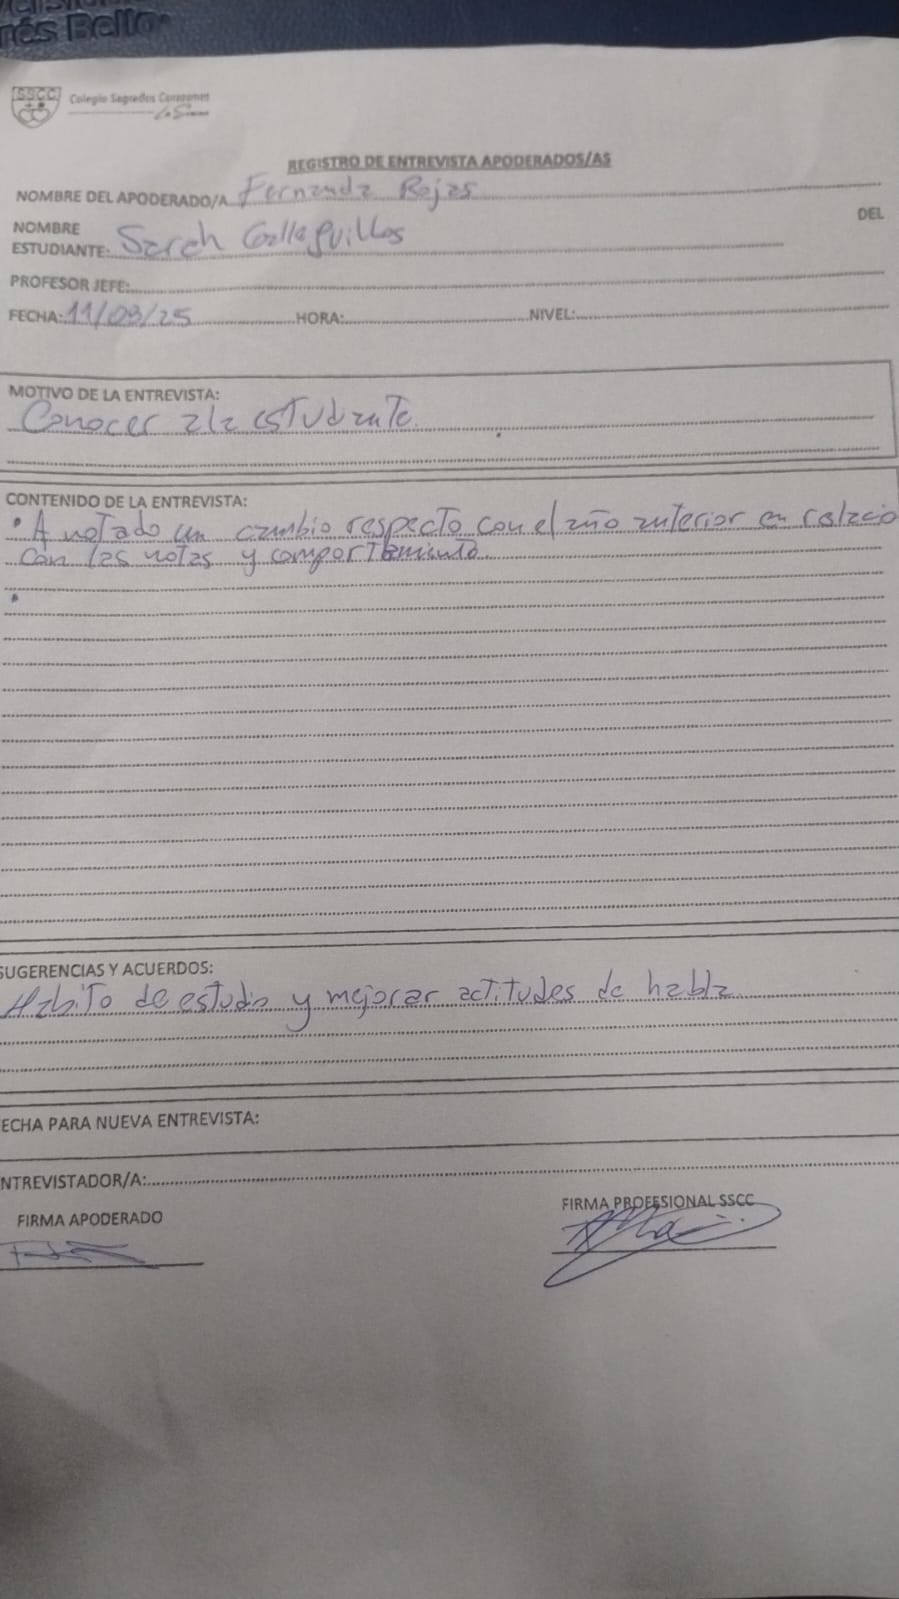 rés Bello
SSCC
Colegio Sagrados Corazones
La Serena
REGISTRO DE ENTREVISTA APODERADOS/AS
NOMBRE DEL APODERADO/A Fernanda Rojas
DEL
NOMBRE
ESTUDIANTE: Sarah Galleguillos
PROFESOR JEFE:
FECHA: 11/09/25 HORA: NIVEL:
MOTIVO DE LA ENTREVISTA:
Conocer a la estudiante.
CONTENIDO DE LA ENTREVISTA:
• A notado un cambio respecto con el año anterior en relacio
con las notas y comportamiento
•
SUGERENCIAS Y ACUERDOS:
Habito de estudio y mejorar actitudes de habla.
ECHA PARA NUEVA ENTREVISTA:
NTREVISTADOR/A:
FIRMA PROFESIONAL SSCC
FIRMA APODERADO